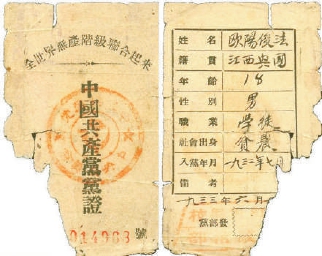 全世界無產階級聯合起來
中國共產黨黨證
014988 號
姓名 歐陽俊法
籍貫 江西興國
年齡 18
性別 男
職業 學徒
社會出身 貧農
入黨年月 一九三二年七月
備考
一九三三年六月
黨部發